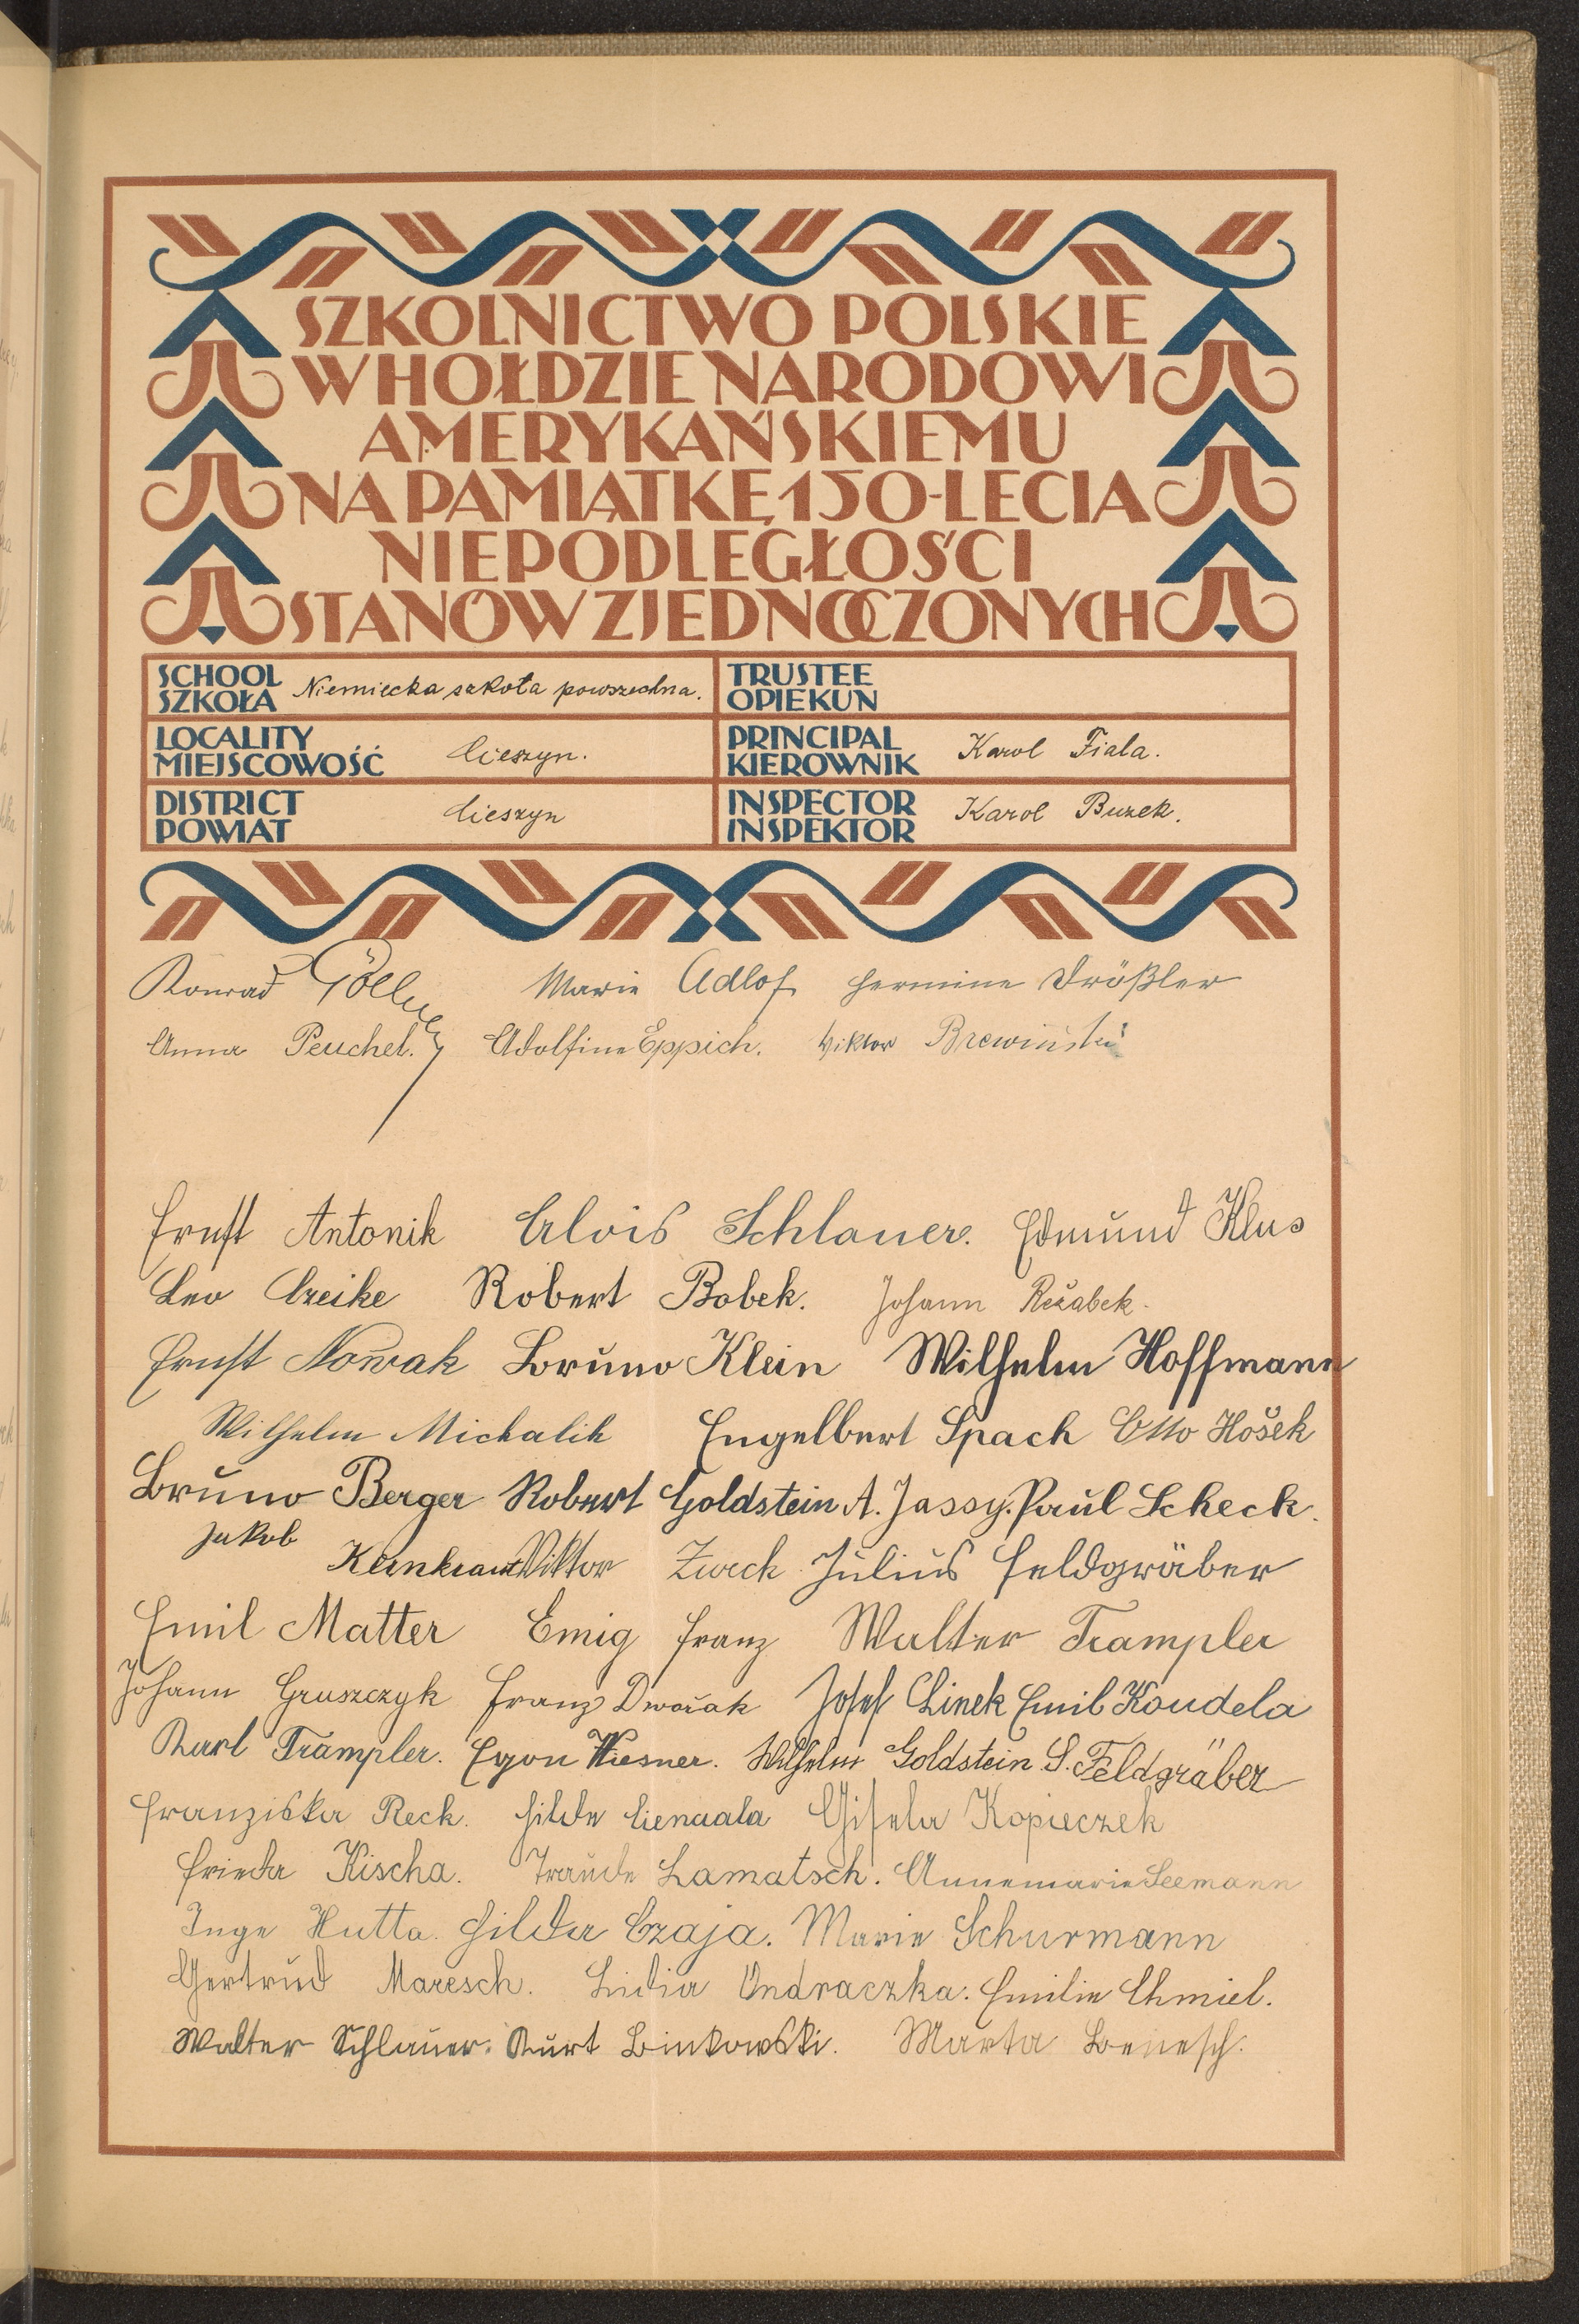 SZKOLNICTWO POLSKIE
W HOŁDZIE NARODOWI
AMERYKAŃSKIEMU
NA PAMIĄTKĘ 150-LECIA
NIEPODLEGŁOŚCI
STANÓW ZJEDNOCZONYCH
SCHOOL
SZKOŁA Niemiecka szkoła powszechna.
TRUSTEE
OPIEKUN
LOCALITY
MIEJSCOWOŚĆ Cieszyn.
PRINCIPAL
KIEROWNIK Karol Fiala.
DISTRICT
POWIAT Cieszyn
INSPECTOR
INSPEKTOR Karol Buzek.
Konrad Marie Adlof Hermine Drößler
Anna Peuchel. Adolfine Eppich. Viktor Brewiński
Ernst Antonik Alois Schlauer. Edmund Klus
Leo Czeike Robert Bobek. Johann Režabek.
Ernst Nowak Bruno Klein Wilhelm Hoffmann
Wilhelm Michalik Engelbert Spach Otto Hošek
Bruno Berger Robert Goldstein A. Jassy. Paul Scheck.
Jakob Kernkraut Viktor Zurek Julius Feldgräber
Emil Matter Emig Franz Walter Trampler
Johann Gruszczyk Franz Dwořak Josef Chinek Emil Koudela
Karl Trampler. Egon Wiesner. Wilhelm Goldstein S. Feldgräber
Franziska Reck. Hilde Cienciala Gisela Kopieczek
Frieda Kischa. Traude Lamatsch. Annemarie Seemann
Inge Hutta. Hilda Czaja. Marie Schurmann
Gertrud Maresch. Lidia Ondraczka. Emilie Chmiel.
Walter Schlauer. Kurt Binkowski. Marta Benesch.